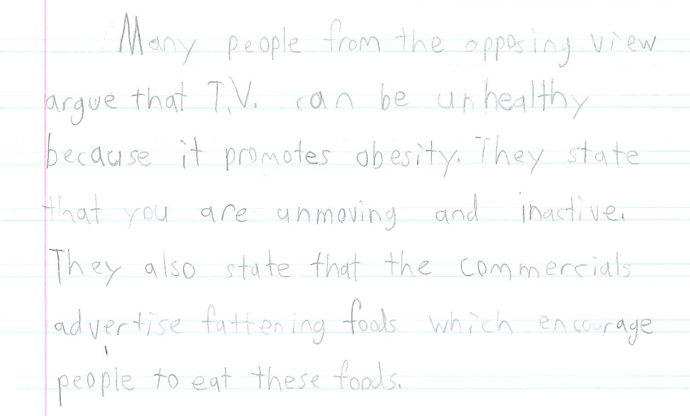 Many people from the opposing view
argue that T.V. can be unhealthy
because it promotes obesity. They state
that you are unmoving and inactive.
They also state that the commercials
advertise fattening foods which encourage
people to eat these foods.